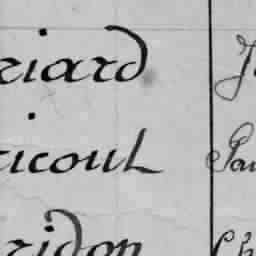 riard J
ricoul Pau
ridon Ch